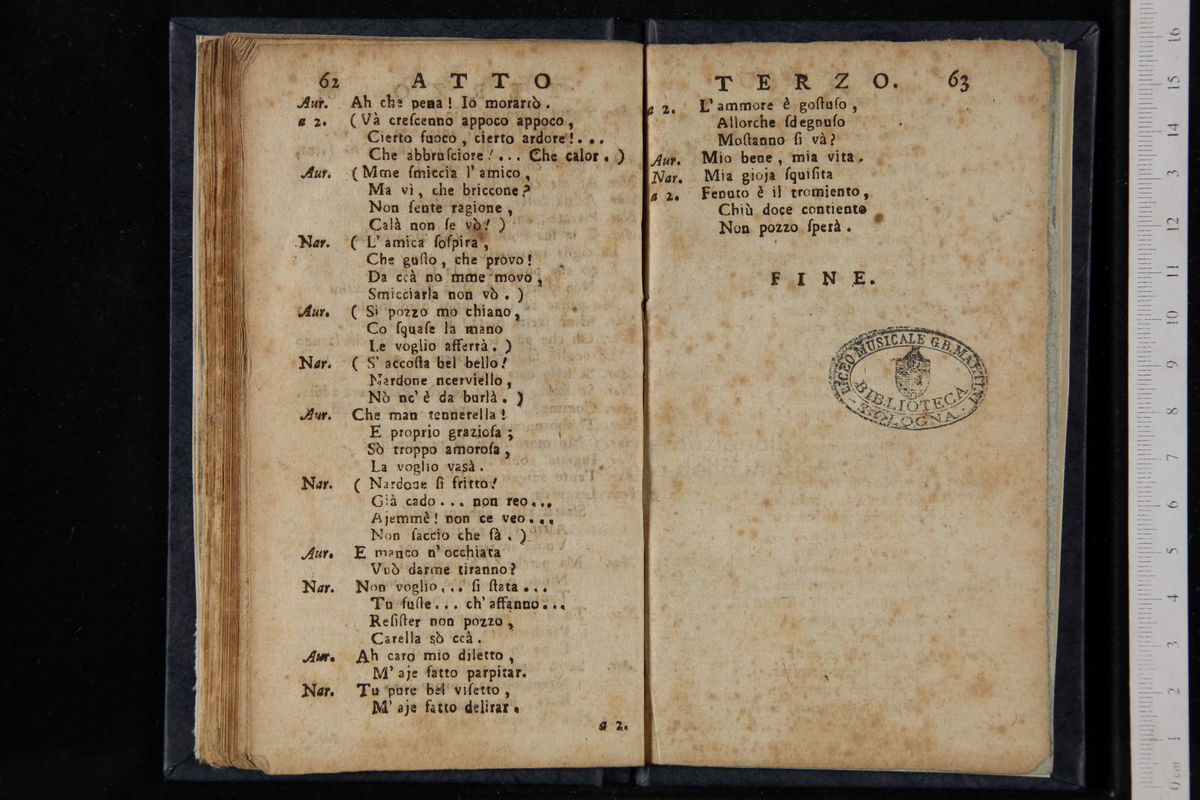 62 ATTO
Aur. Ah che pena! Io morarrò.
a 2. (Và creſcenno appoco appoco,
Cierto fuoco, cierto ardore!...
Che abbruſciore!... Che calor.)
Aur. (Mme ſmiccia l'amico,
Ma vì, che briccone?
Non ſente ragione,
Calà non ſe vò!)
Nar. (L'amica ſoſpira,
Che guſto, che provo!
Da ccà no mme movo,
Smicciarla non vò.)
Aur. (Si pozzo mo chiano,
Co ſquaſe la mano
Le voglio afferrà.)
Nar. (S'accoſta bel bello!
Nardone ncerviello,
Nò nc'è da burlà.)
Aur. Che man tennerella!
E proprio grazioſa;
Sò troppo amoroſa,
La voglio vasà.
Nar. (Nardone ſi fritto!
Già cado... non reo...
Ajemmè! non ce veo...
Non ſaccio che fà.)
Aur. E manco n'occhiata
Vuò darme tiranno?
Nar. Non voglio... ſi ſtata...
Tu fuſte... ch'affanno...
Reſiſter non pozzo,
Carella sò ccà.
Aur. Ah caro mio diletto,
M'aje fatto parpitar.
Nar. Tu pure bel viſetto,
M'aje fatto delirar.
a 2.
TERZO. 63
a 2. L'ammore è goſtuſo,
Allorche ſdegnuſo
Moſtanno ſi và?
Aur. Mio bene, mia vita.
Nar. Mia gioja ſquiſita
a 2. Fenuto è il tromiento,
Chiù doce contiento
Non pozzo ſperà.
FINE.
LICEO MUSICALE G.B. MARTINI
BIBLIOTECA
BOLOGNA
0 cm 1 2 3 4 5 6 7 8 9 10 11 12 13 14 15 16